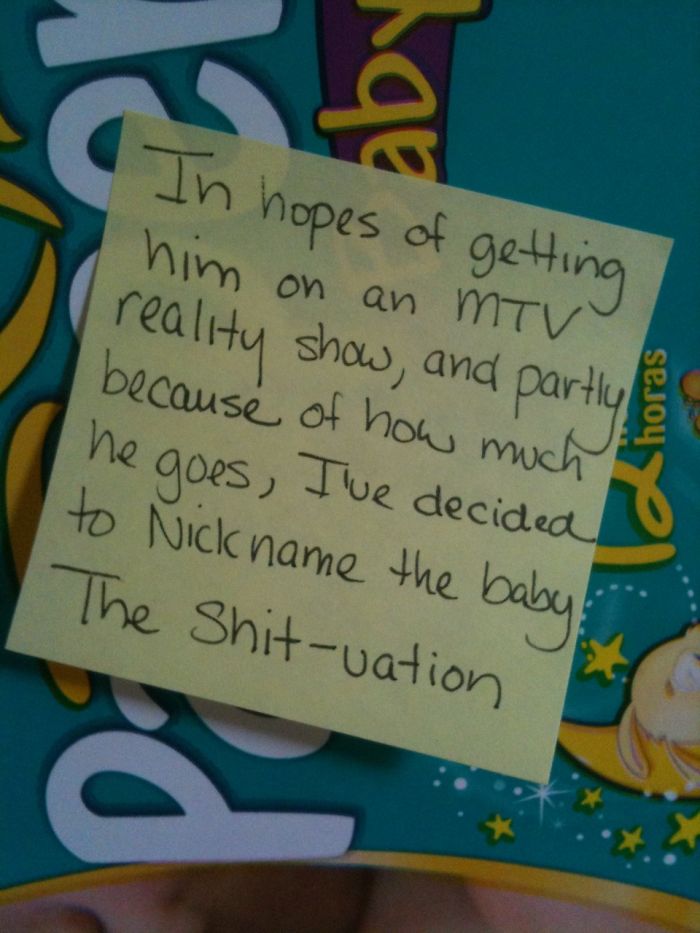 In hopes of getting
him on an MTV
reality show, and partly
because of how much
he goes, I've decided
to Nickname the baby
The Shit-uation
Pa
per
aby
12
horas